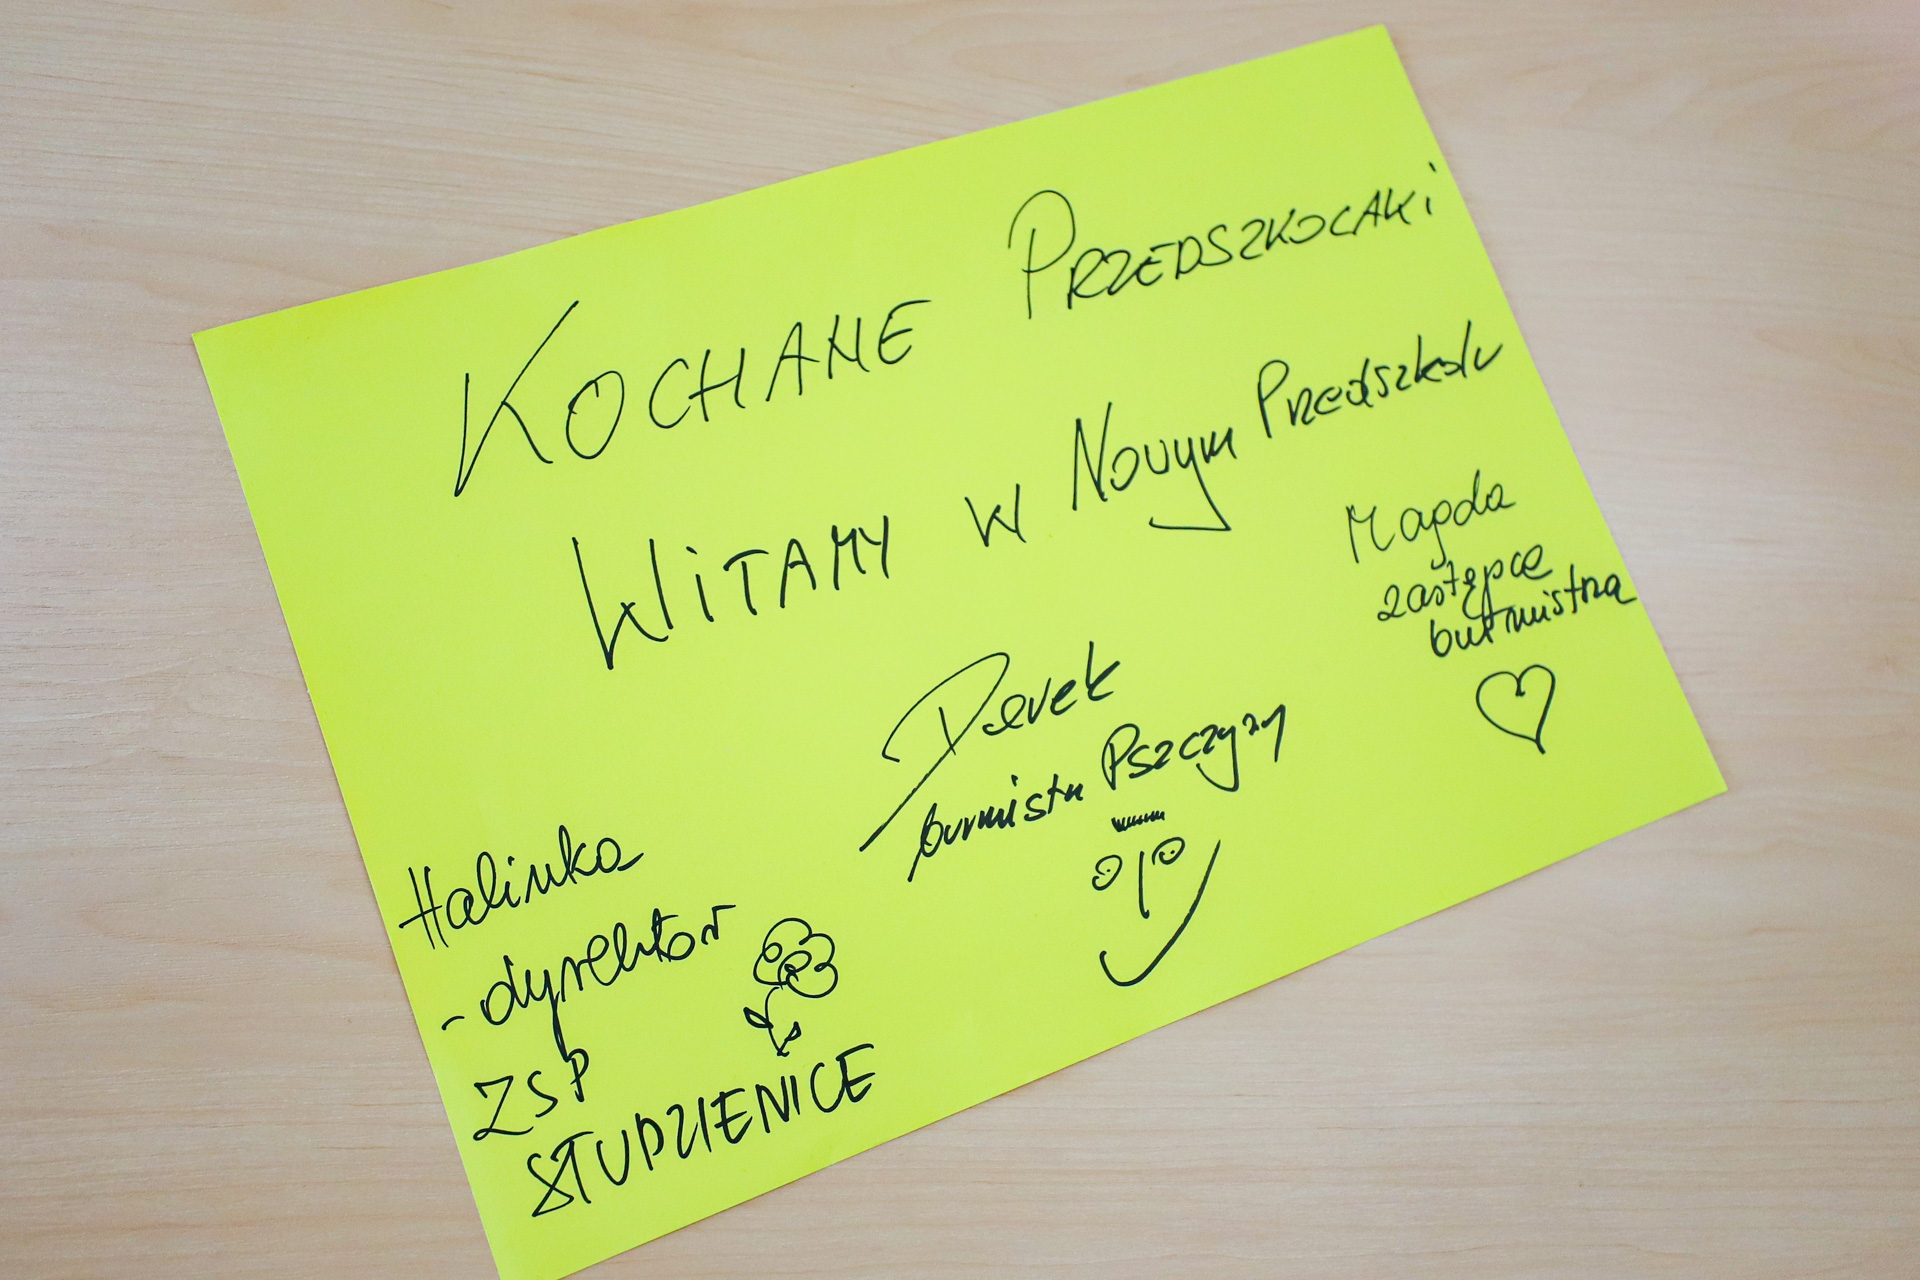 KOCHANE PRZEDSZKOLAKI
WITAMY W Nowym Przedszkolu
Magda
zastępca
burmistrza
Darek
burmistrz Pszczyny
Halinka
- dyrektor
ZSP
STUDZIENICE